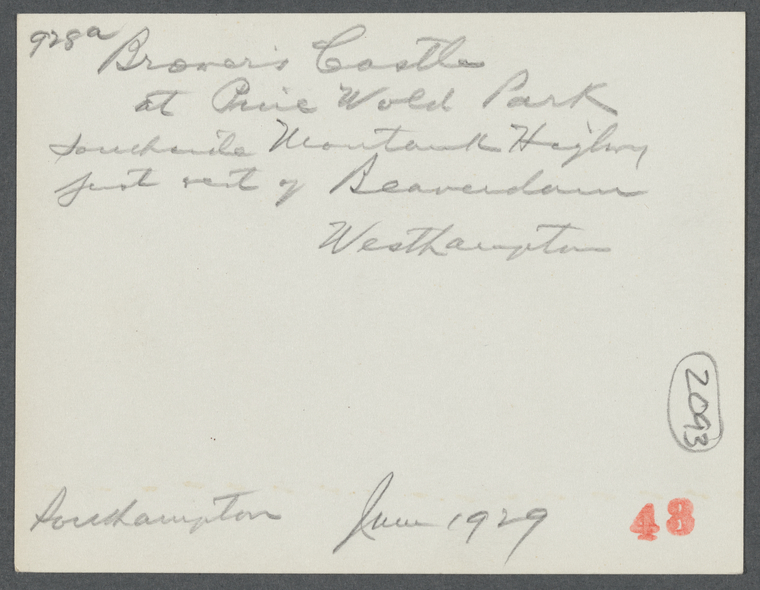 928a
Brower's Castle
at Pine Wold Park
southside Montauk Highwy
just west of Beaverdam
Westhampton
2093
Southampton June 1929
48